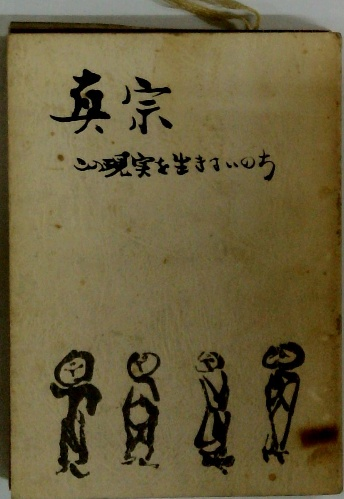 真宗
この現実を生きるいのち